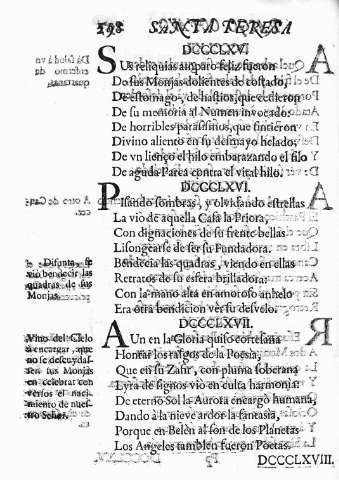 198 SANTA TERESA
DCCCLXV.
SUs reliquias amparo feliz fueron
Do sus Monjas dolientes de costado,
De estomago, de hastios, que cedieron
De su memoria al Numen invocado:
De horribles parasismos, que sintieron
Divino aliento en su desmayo helado,
De vn lienço el hilo embarazando el filo
De aguda Parca contra el vital hilo.
DCCCLXVI.
PIsando sombras, y olvidando estrellas
La viò de aquella Casa la Priora,
Con dignaciones de su frente bellas
Lisongearse de ser su Fundadora.
Bendecia las quadras, viendo en ellas
Retratos de su esfera brilladora:
Con la mano alta en amoroso anhelo
Era otra bendicion ver su desvelo.
Difunta se
viò bendecir las
quadras de sus
Monjas.
DCCCLXVII.
AUn en la Gloria quiso cortesana
Honrar los rasgos de la Poesia,
Que en su Zafir, con pluma soberana
Lyra de signos viò en culta harmonia:
De eterno Sol la Aurora encargò humana,
Dando à la nieve ardor la fantasia,
Porque en Belèn al son de los Planetas
Los Angeles tambien fueron Poetas.
Vino del Cielo
à encargar, que
no se descuydas-
sen sus Monjas
en celebrar con
versos el naci-
miento de nues-
tro Señor.
DCCCLXVIII.